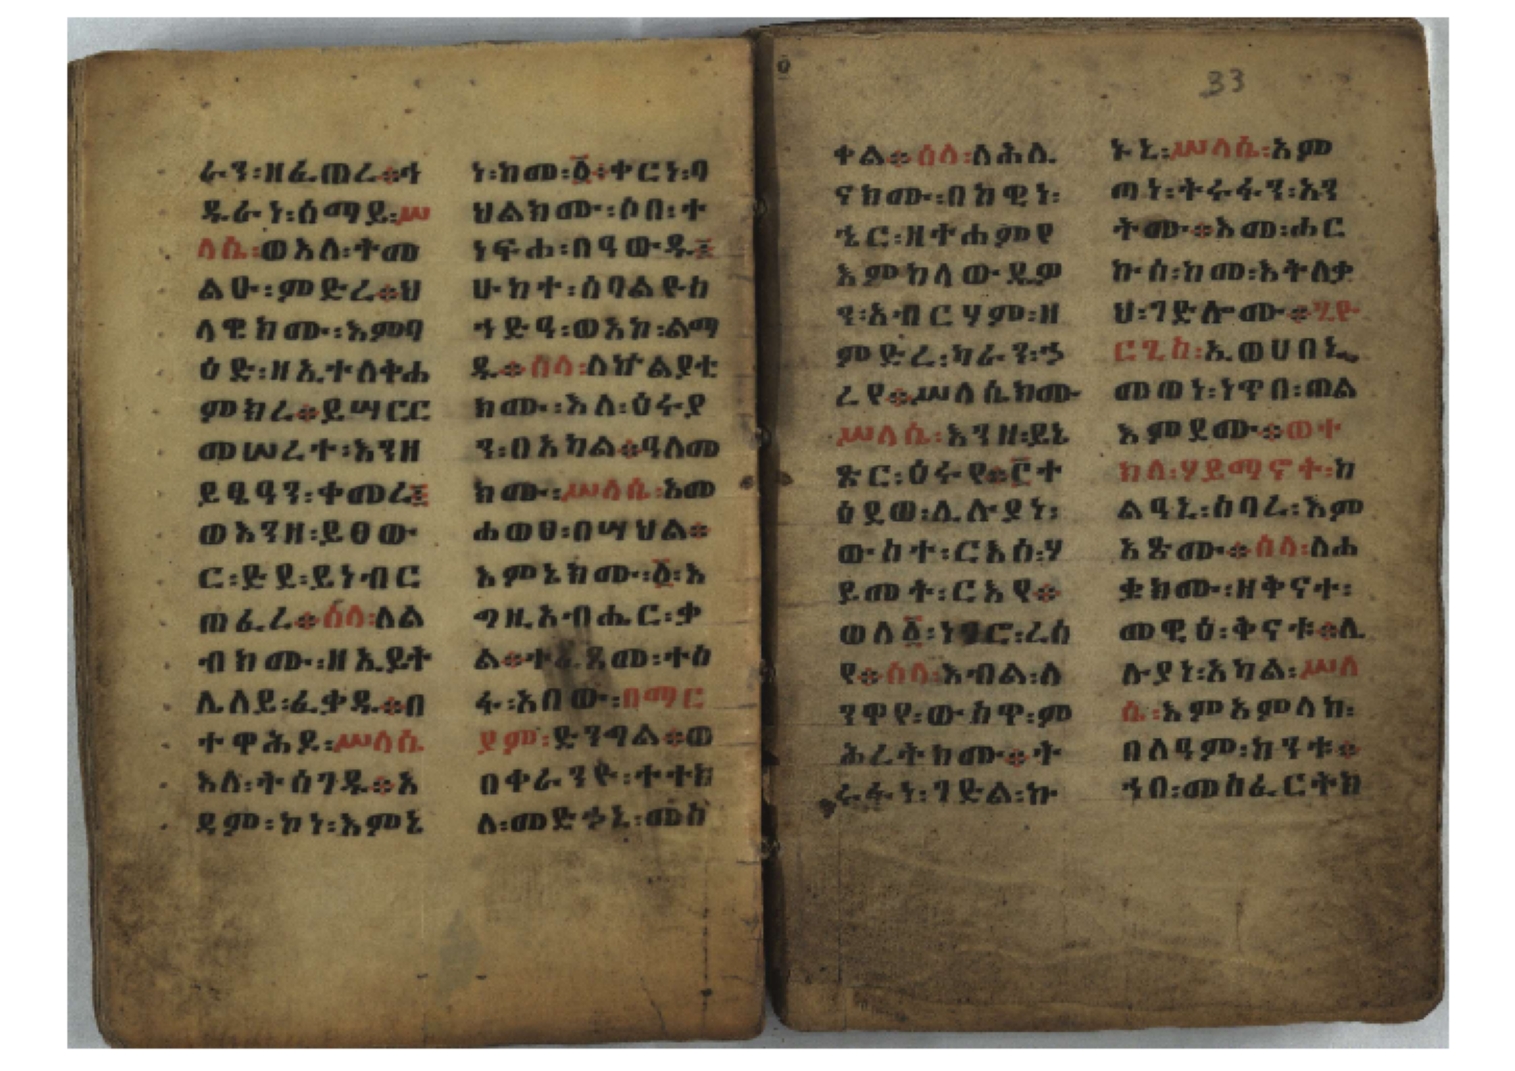 ራን፡ዘፈጠረ፨ኀ
ዱራነ፡ሰማይ፡ሥ
ላሴ፡ወእለ፡ትመ
ልሁ፡ምድረ፨ህ
ላዌክሙ፡እምባ
ዕድ፡ዘኢተለቅሐ
ምክረ፨ይሣርር
መሠረተ፡እንዘ
ይፄዓን፡ቀመረ፤
ወእንዘ፡ይፀው
ር፡ድደ፡ይነብር
ጠፈረ፨ሰላ፡ለል
ብክሙ፡ዘኢይት
ሌለይ፡ፈቃዱ፨በ
ተዋሕዶ፡ሥላሴ
እለ፡ትሰገዱ፨አ
ዳም፡ኮነ፡እምኔ
ነ፡ከመ፡፩፡ቀርነ፡ባ
ህልክሙ፡ሶበ፡ተ
ነፍሐ፡በዓውዱ፤
ሁከተ፡ሰባልዮስ
ኀድዓ፡ወአከ፡ልማ
ዱ፨ሰላ፡ለኵልያቲ
ክሙ፡እለ፡ዕሩያ
ን፡በአካል፨ዓለመ
ክሙ፡ሥላሴ፡አመ
ሐወፀ፡በሣህል፨
እምኔክሙ፡፩፡እ
ግዚአብሔር፡ቃ
ል፨ተፈጸመ፡ተስ
ፋ፡አበው፡በማር
ያም፡ድንግል፨ወ
በቀራንዮ፡ተተክ
ለ፡መድኃኒ፡መስ
33
ቀል፨ሰላ፡ለሕሊ
ናክሙ፡በከዊነ፡
ኄር፡ዘተሐምየ
እምከላውዴዎ
ን፡አብርሃም፡ዘ
ምድረ፡ካራን፡ኃ
ረየ፨ሥላሴክሙ
ሥላሴ፡እንዘ፡ይኔ
ጽር፡ዕሩየ፨፫ተ
ዕደወ፡ሌሉያነ፡
ውስተ፡ርእሰ፡ሃ
ይመት፡ርእየ፨
ወለ፩፡ነገሮ፡ረሰ
የ፨ሰላ፡እብል፡ለ
ንዋየ፡ውስዋ፡ም
ሕረትክሙ፨ት
ሩፋነ፡ገድል፡ኩ
ኑኒ፡ሥላሴ፡እም
ጣነ፡ትሩፋን፡አን
ትሙ፨አመ፡ሐር
ኩሰ፡ከመ፡እትለቃ
ህ፡ገድሎሙ፨ጊዮ
ርጊስ፡ኢወሀበኒ
መወነ፡ነዋበ፡ጠል
እምደሙ፨ወተ
ክለ፡ሃይማኖት፡ከ
ልዓኒ፡ስባረ፡እም
አጽሙ፨ሰላ፡ለሐ
ቋክሙ፡ዘቅናተ፡
መዊዕ፡ቅናቱ፨ሌ
ሉያነ፡አካል፡ሥላ
ሴ፡እምአምላክ፡
በለዓም፡ክንቱ፨
ኀበ፡መስፈርትክ